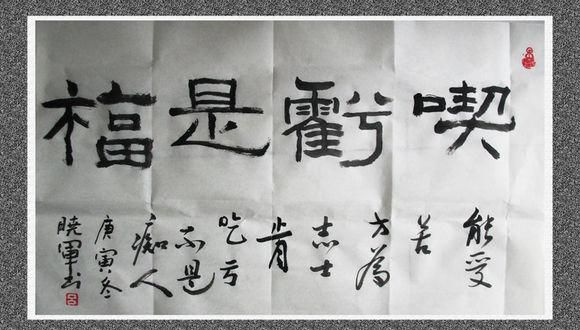 喫虧是福
能受
苦
方為
志士
肯
吃亏
不是
痴人
庚寅冬
晓軍书